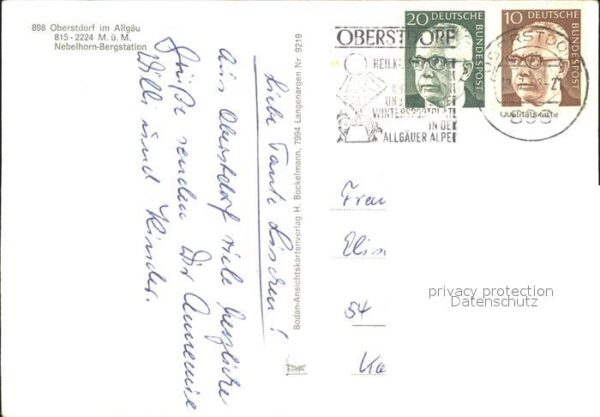 898 Oberstdorf im Allgäu
815 - 2224 M. ü. M.
Nebelhorn-Bergstation
Liebe Tante Lieschen!
Aus Oberstdorf viele herzliche
Grüße senden Dir Annemie
Willi und Kinder.
Bodan-Ansichtskartenverlag H. Bockelmann, 7994 Langenargen Nr 9219
OBERSTDORF
HEILK
UN
WINTERSPORTPLATZ
IN DER
ALLGÄUER ALPEN
20 DEUTSCHE
BUNDESPOST
10 DEUTSCHE
BUNDESPOST
OBERSTDORF
Qualitätskarte
Frau
Elis
54
Ko
privacy protection
Datenschutz